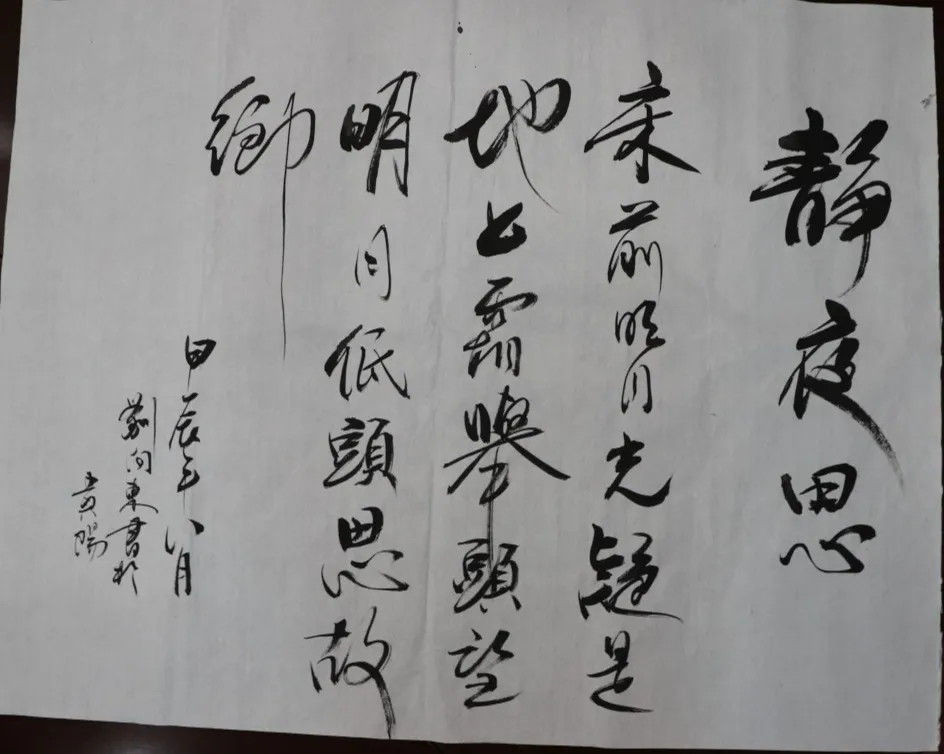 靜夜思
床前明月光疑是
地上霜舉頭望
明月低頭思故
鄉
甲辰年八月
劉向東書於
貴陽